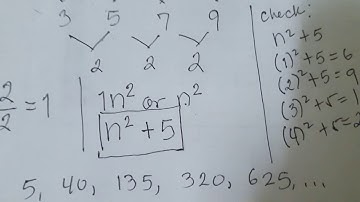 3 5 7 9
2 2 2
2/2 = 1
1n² or n²
n² + 5
check:
n² + 5
(1)² + 5 = 6
(2)² + 5 = 9
(3)² + 5 = 1
(4)² + 5 = 2
5, 40, 135, 320, 625, ...